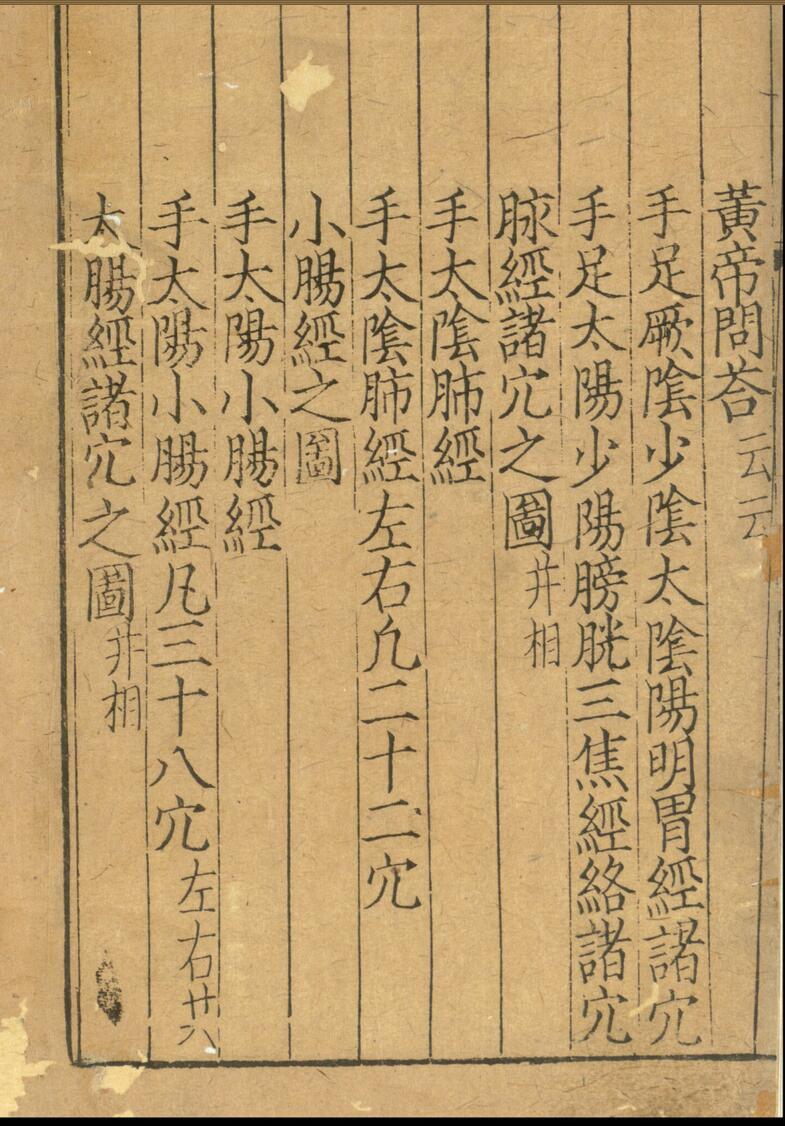 黃帝問荅云云
手足厥陰少陰太陰陽明胃經諸穴
手足太陽少陽膀胱三焦經絡諸穴
脉經諸穴之圖并相
手太陰肺經
手太陰肺經左右凡二十二穴
小腸經之圖
手太陽小腸經
手太陽小腸經凡三十八穴左右廿八
太腸經諸穴之圖并相